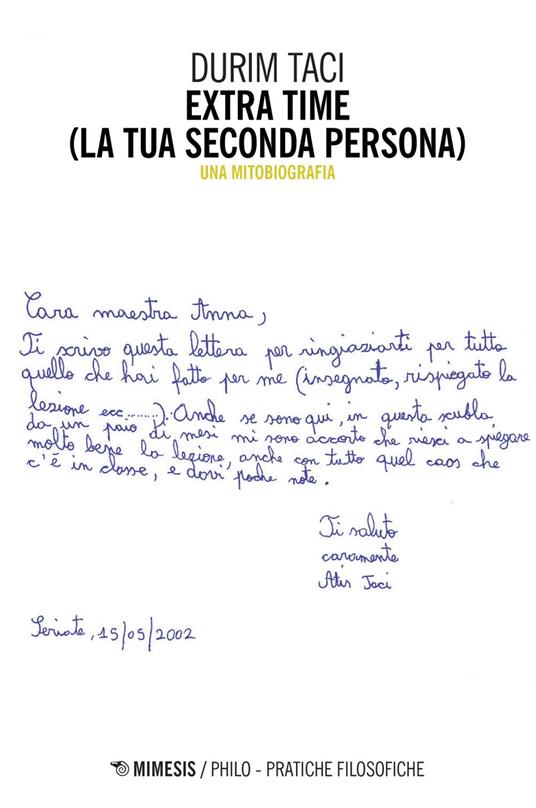 DURIM TACI
EXTRA TIME
(LA TUA SECONDA PERSONA)
UNA MITOBIOGRAFIA
Cara maestra Anna,
Ti scrivo questa lettera per ringiaziarti per tutto
quello che hai fatto per me (insegnato, rispiegato la
lezione ecc........). Anche se sono qui, in questa scuola,
da un paio di mesi mi sono accorto che riesci a spiegare
molto bene la lezione, anche con tutto quel caos che
c'è in classe, e dovi poche note.
Ti saluto
caramente
Atis Taci
Seriate, 15/05/2002
MIMESIS / PHILO - PRATICHE FILOSOFICHE